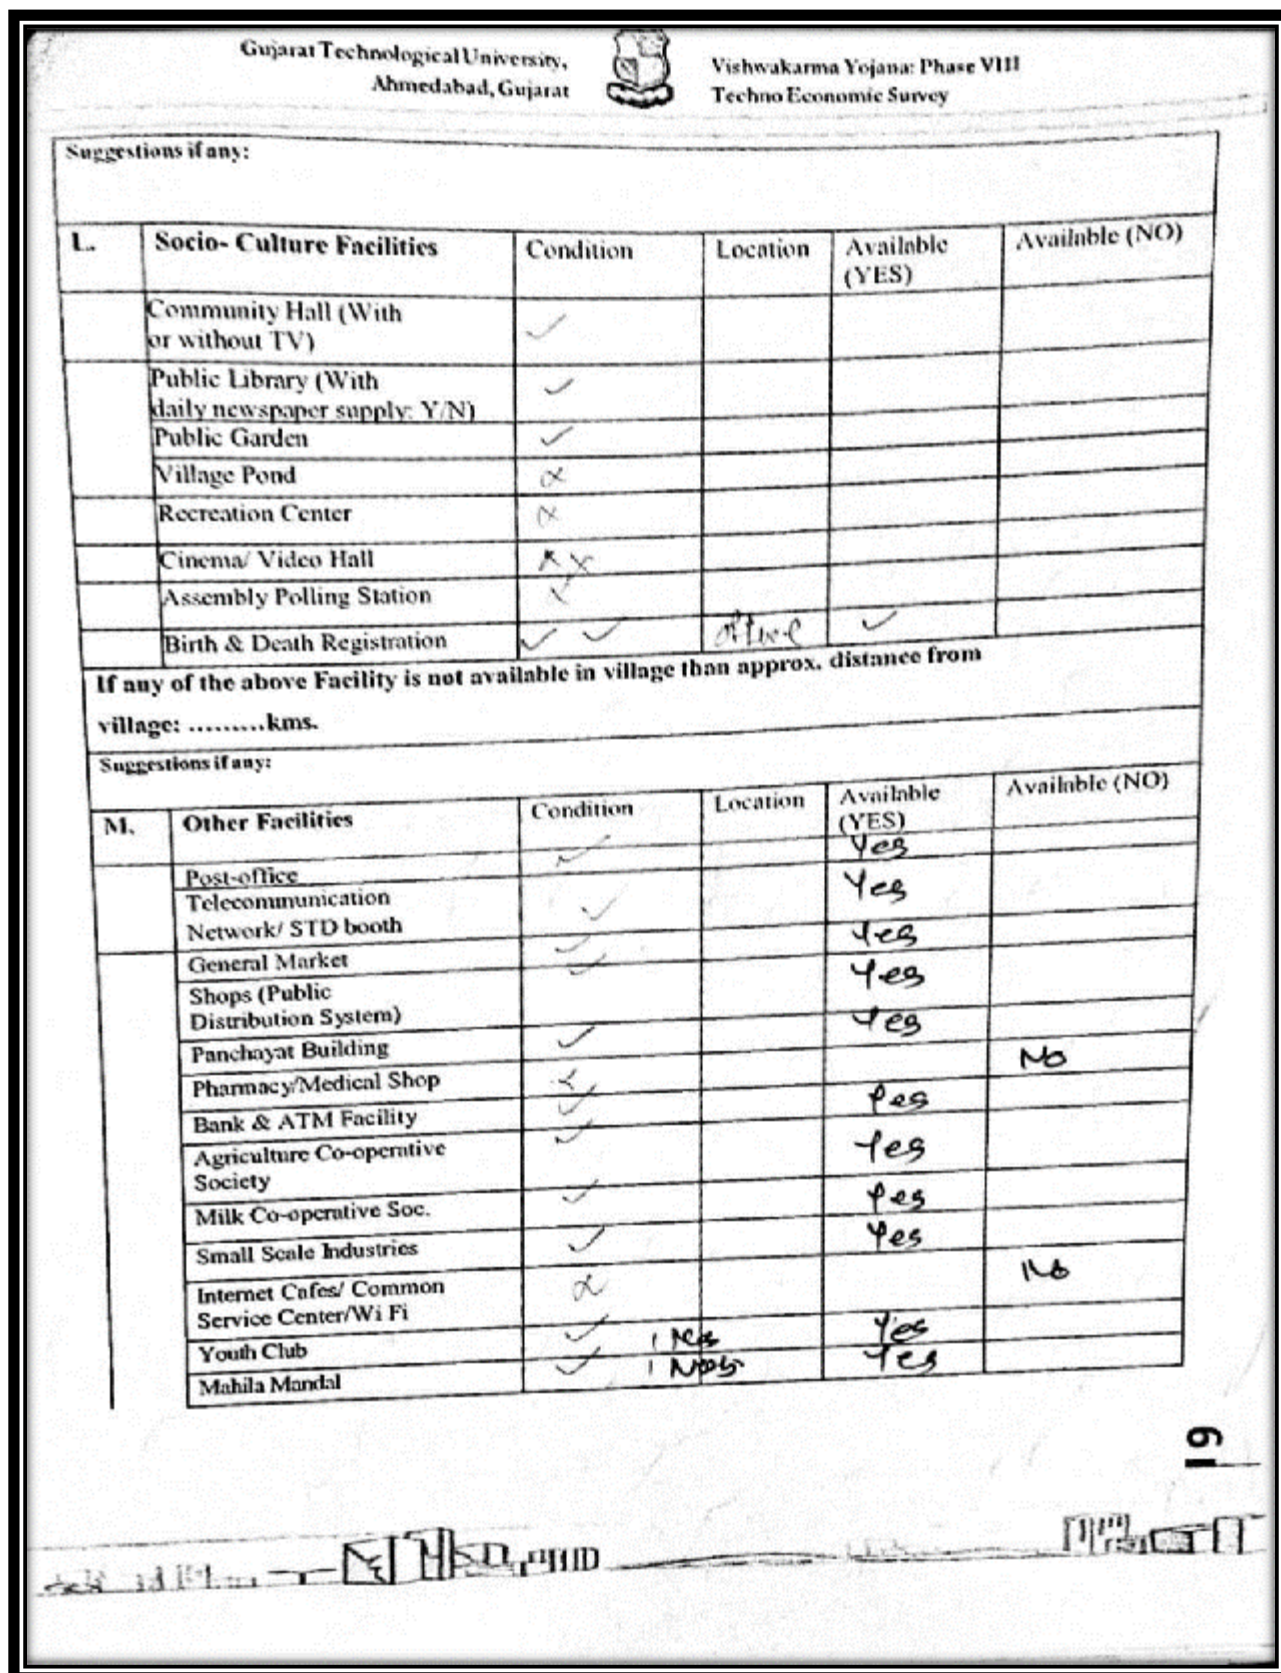 Gujarat Technological University,
Ahmedabad, Gujarat
Vishwakarma Yojana: Phase VIII
Techno Economic Survey
Suggestions if any:
L. Socio- Culture Facilities Condition Location Available (YES) Available (NO)
Community Hall (With
or without TV) ✓
Public Library (With
daily newspaper supply: Y/N) ✓
Public Garden ✓
Village Pond x
Recreation Center x
Cinema/ Video Hall x x
Assembly Polling Station
Birth & Death Registration ✓ ✓ office ✓
If any of the above Facility is not available in village than approx. distance from
village: .........kms.
Suggestions if any:
M. Other Facilities Condition Location Available (YES) Available (NO)
Post-office ✓ Yes
Telecommunication
Network/ STD booth ✓ Yes
General Market ✓ Yes
Shops (Public
Distribution System) ✓ Yes
Panchayat Building ✓ Yes
Pharmacy/Medical Shop No
Bank & ATM Facility ✓ Yes
Agriculture Co-operative
Society ✓ Yes
Milk Co-operative Soc. ✓ Yes
Small Scale Industries ✓ Yes
Internet Cafes/ Common
Service Center/Wi Fi x No
Youth Club ✓ Yes
Mahila Mandal ✓ Yes
19